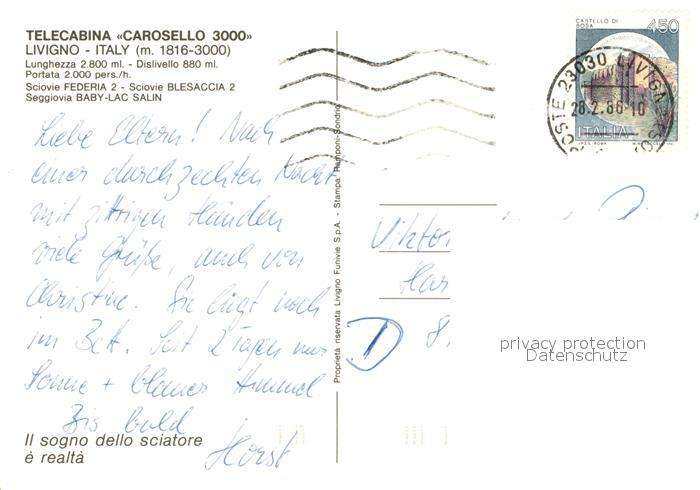 TELECABINA «CAROSELLO 3000»
LIVIGNO - ITALY (m. 1816-3000)
Lunghezza 2.800 ml. - Dislivello 880 ml.
Portata 2.000 pers./h.
Sciovie FEDERIA 2 - Sciovie BLESACCIA 2
Seggiovia BABY-LAC SALIN
Liebe Eltern! Nach
einer durchzechten Nacht
mit zittrigen Händen
viele Grüße, auch von
Christine. Sie liegt noch
im Bett. Seit 2 Tagen nur
Sonne + blauer Himmel
Bis bald
Horst
Il sogno dello sciatore
è realtà
Proprietà riservata Livigno Funivie S.p.A. - Stampa: Ramponi-Sondrio
CASTELLO DI
ROSA
450
ITALIA
POSTE 23030 LIVIG
28.2.86-10
Viktor
Har
8.
D
privacy protection
Datenschutz